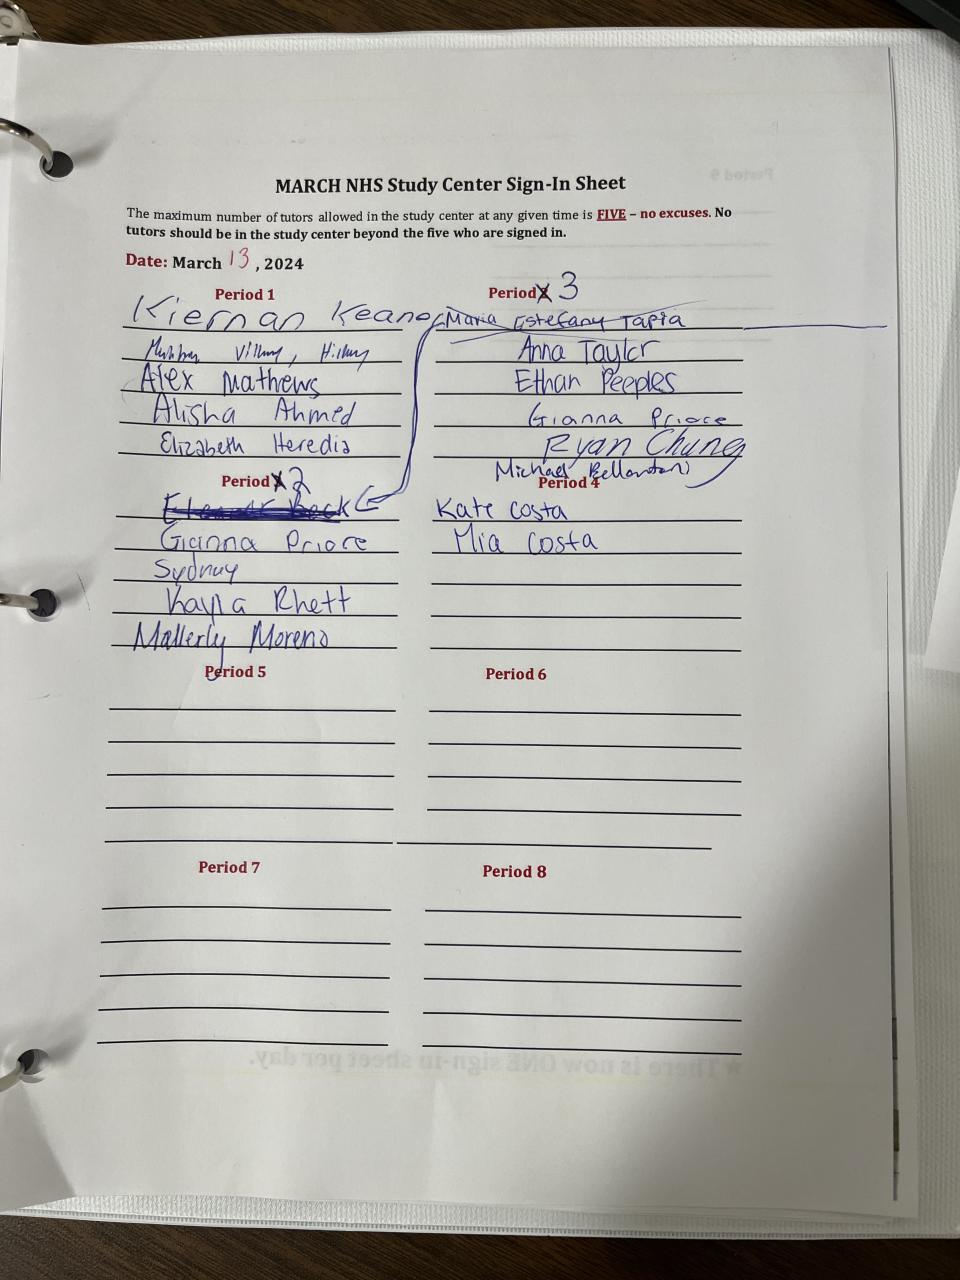 MARCH NHS Study Center Sign-In Sheet
The maximum number of tutors allowed in the study center at any given time is FIVE – no excuses. No
tutors should be in the study center beyond the five who are signed in.
Date: March 13, 2024
Period 1
Kiernan Keane
Hillary
Alex Mathews
Alisha Ahmed
Elizabeth Heredia
Period 3
Maria Estefany Tapia
Anna Taylor
Ethan Peeples
Gianna Priore
Ryan Chung
Michael Bellantoni
Period 2
Beck
Gianna Priore
Sydney
Kayla Rhett
Mallerly Moreno
Period 4
Kate Costa
Mia Costa
Period 5
Period 6
Period 7
Period 8
Period 9
★There is now ONE sign-in sheet per day.